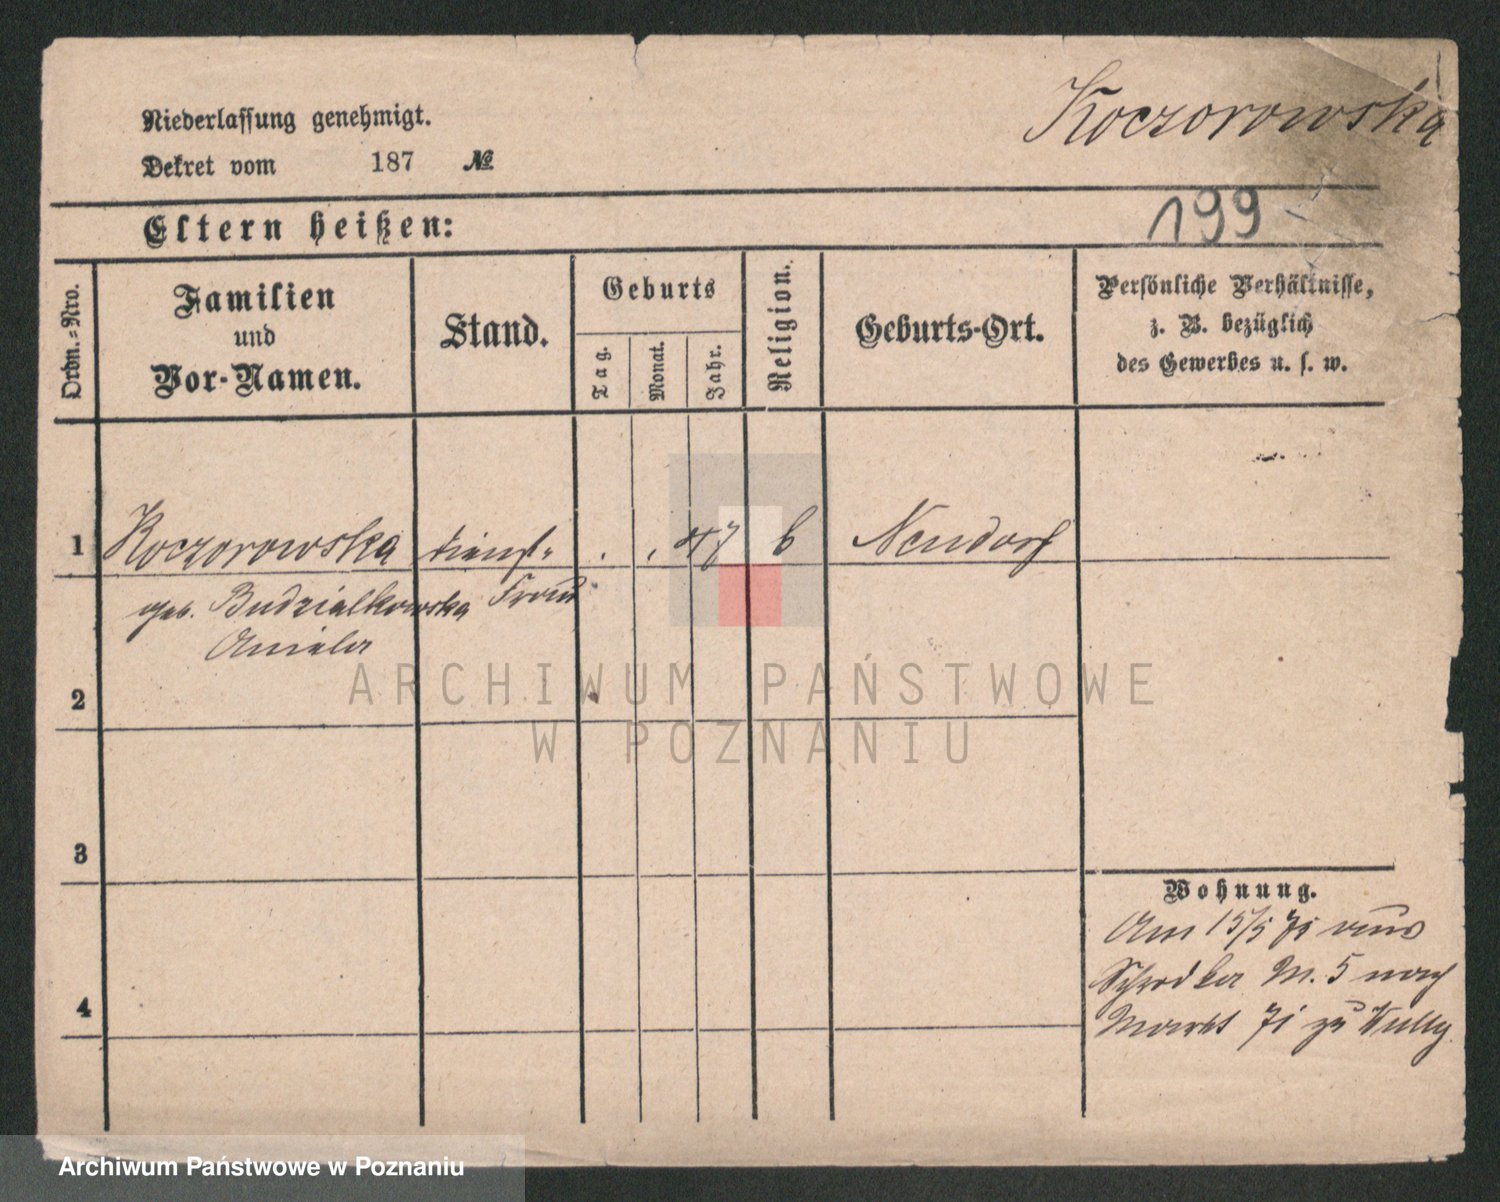 Koczorowska
Niederlassung genehmigt.
Dekret vom 187 №
199
Eltern heißen:
Ordn.-Nro.
Familien
und
Vor-Namen.
Stand.
Geburts
Tag.
Monat.
Jahr.
Religion.
Geburts-Ort.
Persönliche Verhältnisse,
z. B. bezüglich
des Gewerbes u. s. w.
1 Koczorowska Dienst- . . 47 Neudorf
geb. Budzialkowska Frau
Aniela
2
3
4
Wohnung.
Am 15/5 71 aus
Schrodka M. 5 nach
Markt 71 zu
ARCHIWUM PAŃSTWOWE
W POZNANIU
Archiwum Państwowe w Poznaniu